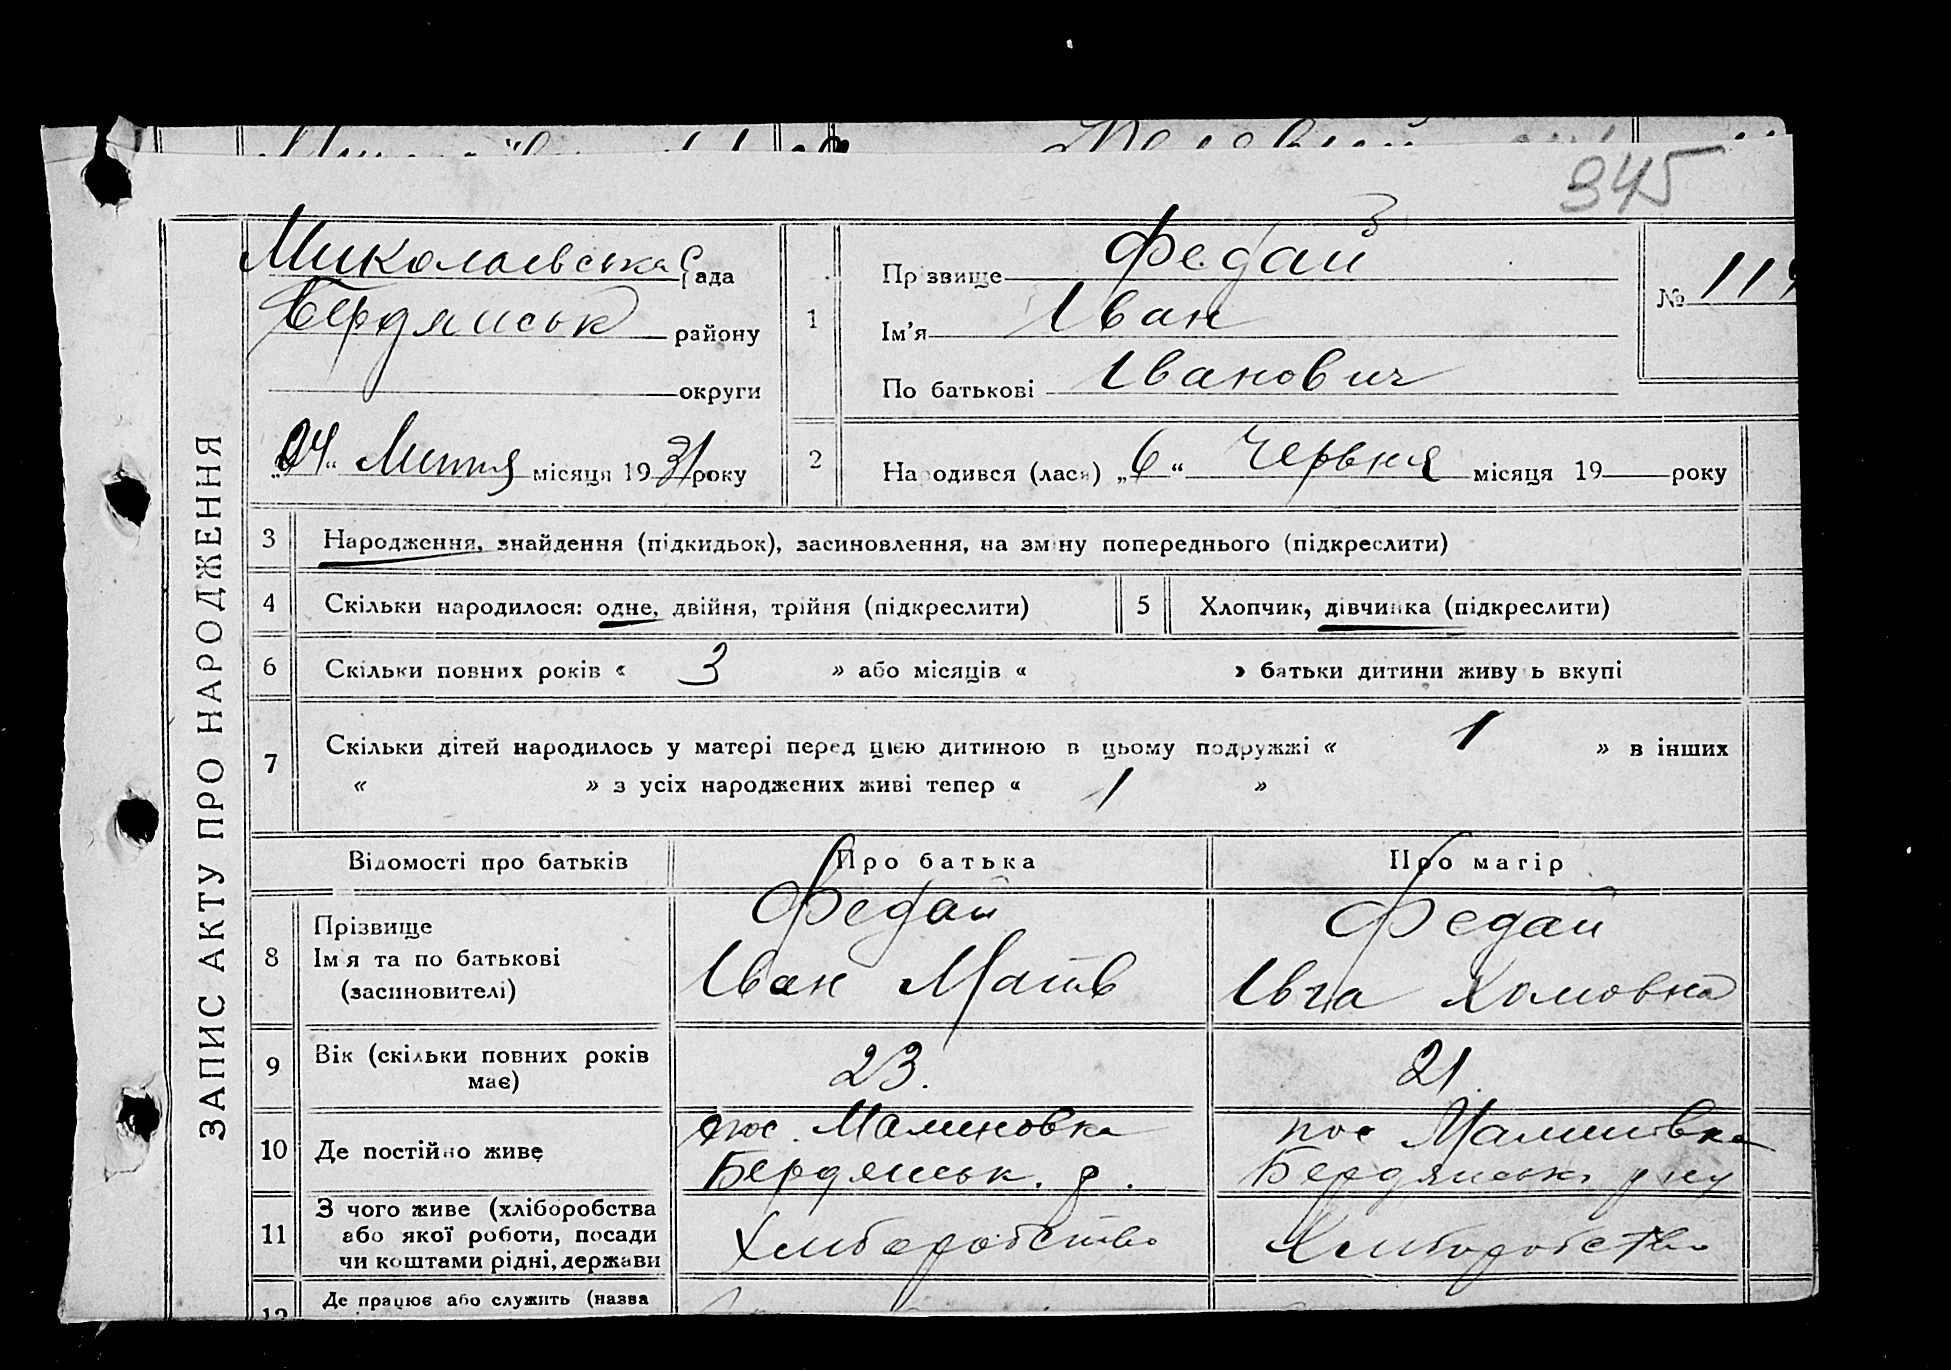 345
ЗАПИС АКТУ ПРО НАРОДЖЕННЯ
Миколаєвська Рада
Бердянськ району
округи
„24“ Липня місяця 1931 року
1
Прізвище Федай
Ім’я Іван
По батькові Іванович
№ 11
2 Народився (лася) „6“ Червня місяця 19 року
3 Народження, знайдення (підкидьок), засиновлення, на зміну попереднього (підкреслити)
4 Скільки народилося: одне, двійня, трійня (підкреслити) 5 Хлопчик, дівчинка (підкреслити)
6 Скільки повних років « 3 » або місяців « » батьки дитини живуть вкупі
7 Скільки дітей народилось у матері перед цією дитиною в цьому подружжі « 1 » в інших
« » з усіх народжених живі тепер « 1 »
Відомості про батьків Про батька Про матір
8 Прізвище Федай Федай
Ім'я та по батькові Іван Матв Івга Хомовна
(засиновителі)
9 Вік (скільки повних років має) 23. 21.
10 Де постійно живе пос. Малиновка пос Малиновка
Бердянськ. р. Бердянськ. р ну
11 З чого живе (хліборобства Хліборобство Хліборобство
або якої роботи, посади
чи коштами рідні, держави
12 Де працює або служить (назва